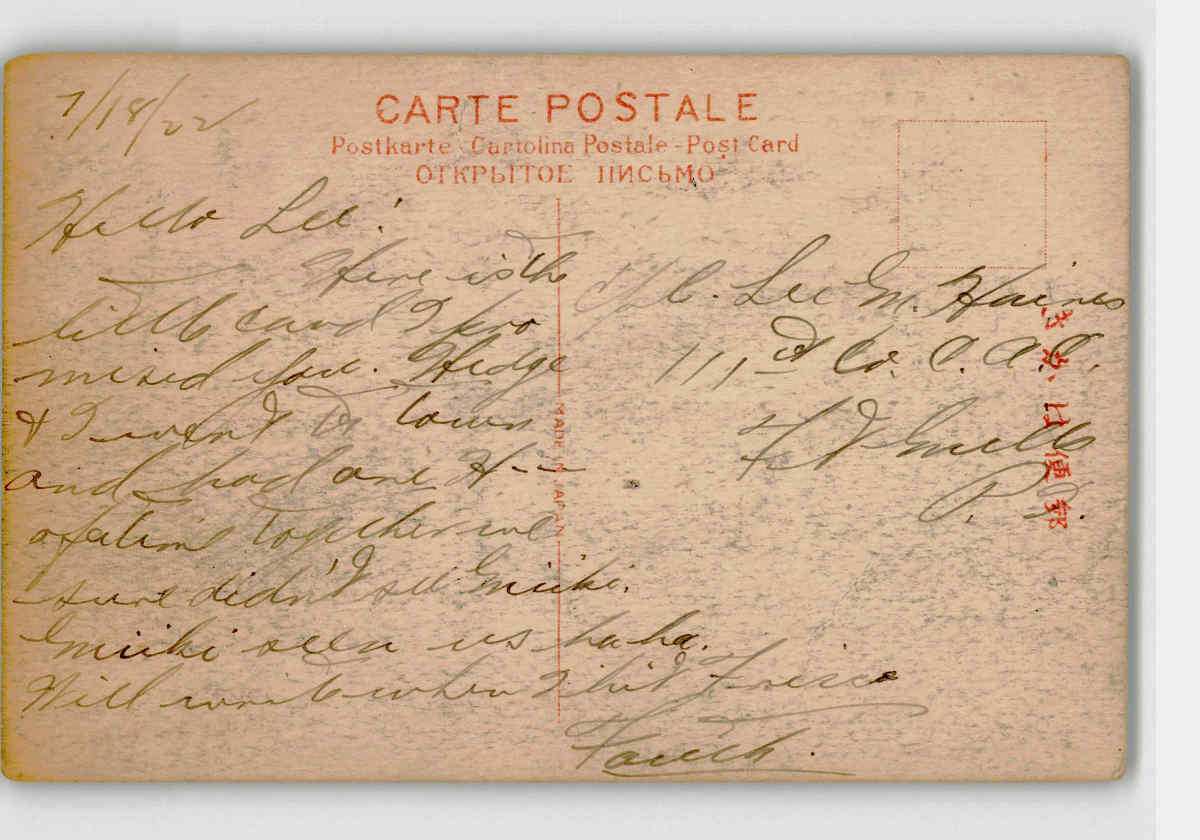 7/18/22
CARTE POSTALE
Postkarte - Cartolina Postale - Post Card
ОТКРЫТОЕ ПИСЬМО
Hello Lee!
Here is the
little card I pro
mised you. Hedge
& I went to town
and had one H--
of a time together we
sure didn't see Miiki.
Miiki seen us ha ha.
Will write when I hit Frisco
C. Lee M. Haines
111, Co. C. A. C.
Ft Mills
P. I.
MADE IN JAPAN
郵便は